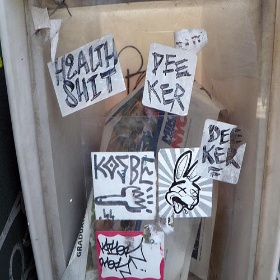 HEALTH
SHIT
DEE
KER
DEE
KER
KOSBE
GRADU